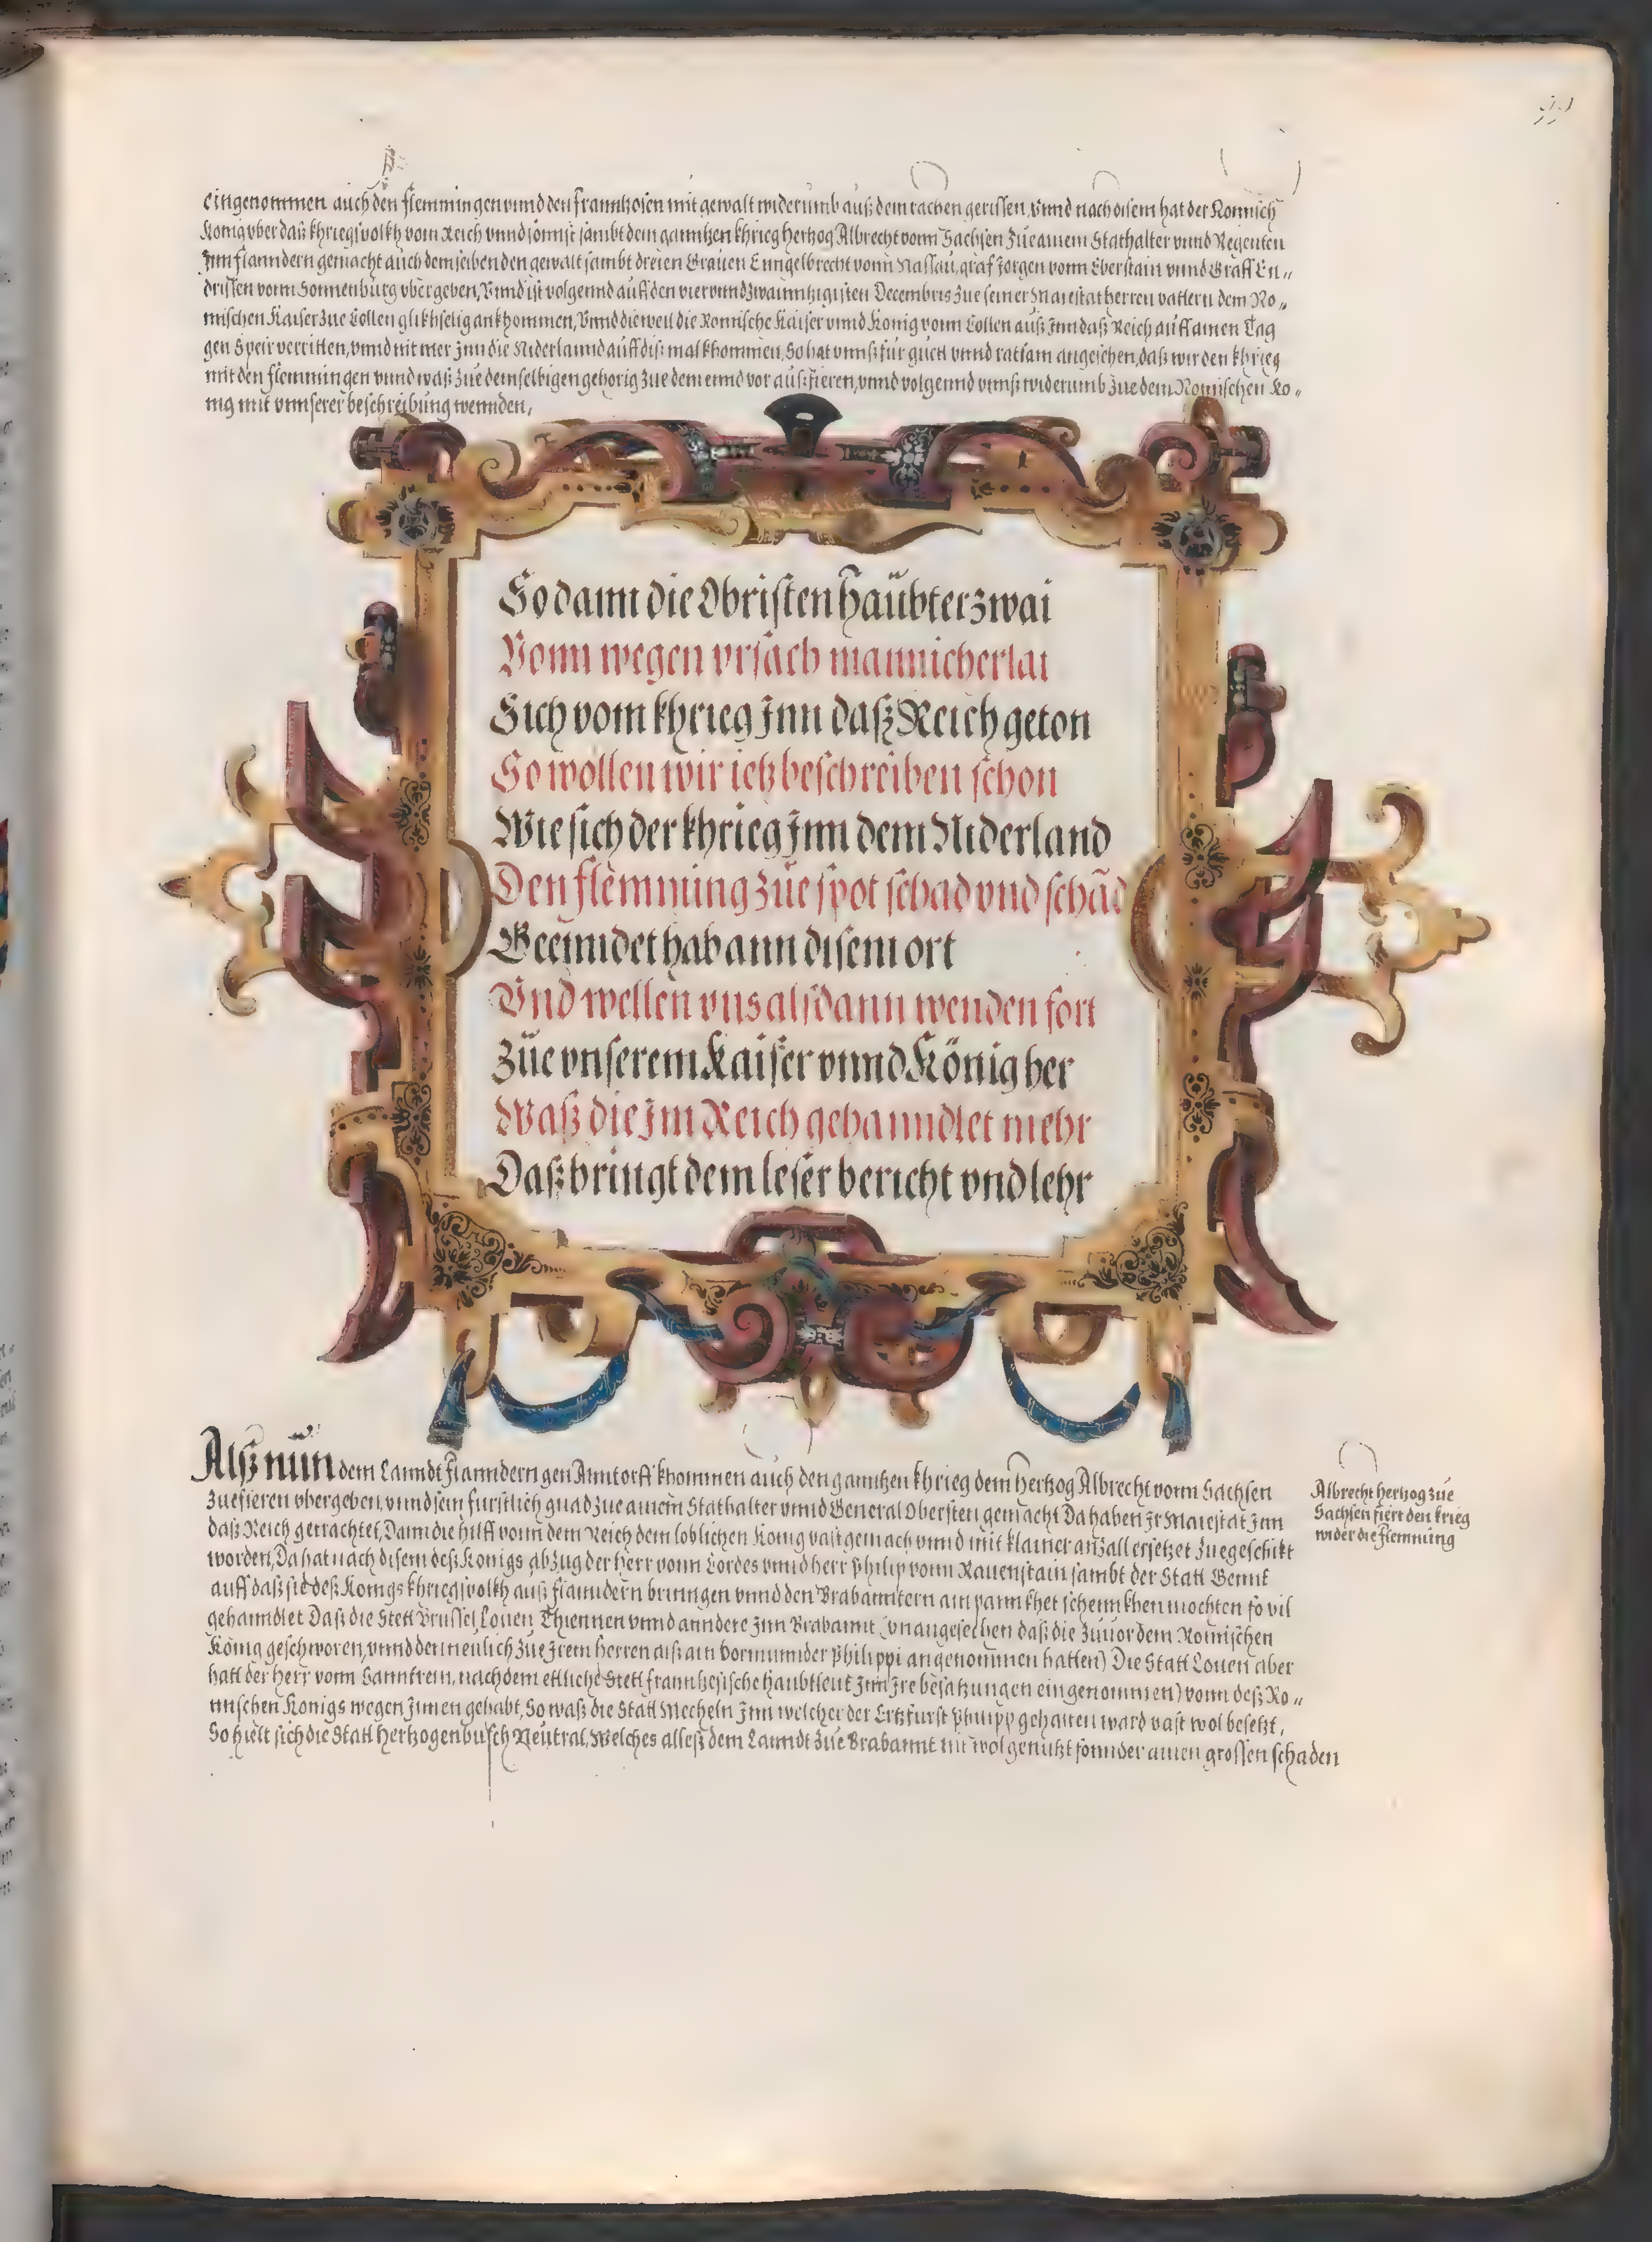 eingenommen auch den flemmingen vnnd den frannhosen mit gewalt widerumb auß dem rachen gerissen, vnnd nach disem hat der Romisch
König vber daß khriegsvolkh vom Reich vnnd sonnst sambt dem ganntzen khrieg hertzog Albrecht vonn Sachsen zue ainem Stathalter vnnd Regenten
Jnn flanndern gemacht auch demselben den gewalt sambt dreien Grauen Enngelbrecht vonn Nassau, graf Jorgen vonn Eberstain vnnd Graff En„
drissen vonn Sonnenburg vbergeben, Vnnd ist volgennd auff den viervnndzwainntzigisten Decembris zue seiner Maiestat herren vattern dem Ro„
mischen Kaiser zue Collen glikhselig ankhommen, Vnnd dieweil die Romische Kaiser vnnd König vonn Collen auß Jnn daß Reich auff ainen Tag
gen Speir verritten, vnnd nit mer Jnn die Niderlannd auff diß mal khommen, So hat vnnß für guett vnnd ratsam angesehen, daß wir den khrieg
mit den flemmingen vnnd waß zue demselbigen gehorig zue dem ennd vor auß fieren, vnnd volgennd vnnß widerumb zue dem Romischen Ko„
nig mit vnnserer beschreibung wennden,
So dann die Obristen Haübter zwai
Vonn wegen vrsach mannicherlai
Sich vom khrieg Jnn daß Reich geton
So wöllen wir ietz beschreiben schon
Wie sich der khrieg Jnn dem Niderland
Den flemming züe spot schad vnd schād
Geenndet hab ann disem ort
Vnd wellen vns alsdann wenden fort
Züe vnserem Kaiser vnnd König her
Waß die Jm Reich gehanndlet mehr
Daß bringt dem leser bericht vnd lehr
Alß nün dem Lanndt Flanndern gen Anntorff khommen auch den ganntzen khrieg dem Hertzog Albrecht vonn Sachsen
zuefieren vbergeben, vnnd sein furstlich gnad zue ainem Stathalter vnnd General Obersten gemacht Da haben Jr Maiestat Jnn
daß Reich getrachtet, Dann die hilff vonn dem Reich dem loblichen König vast gemach vnnd mit klainer anzall ersetzet zuegeschikt
worden, Da hat nach disem deß Königs abzug der Herr vonn Cordes vnnd herr Philip vonn Rauenstain sambt der Statt Gennt
auff daß sie deß Königs khriegsvolkh auß flanndern bringen vnnd den Brabanntern ain pannkhet schennkhen möchten so vil
gehanndlet Daß die Stett Brussel, Louen Thiennen vnnd anndere Jnn Brabannt (vnangesehen daß die zuuor dem Romischen
König geschworen, vnnd den neulich zue Jrem herren alß ain vormunnder Philippi angenommen hatten) Die Statt Louen aber
hatt der Herr vonn Sanntrein, nachdem ettliche Stett frantzesische haubtleut Jnn Jre besatzungen eingenommen) vonn deß Ro„
mischen Konigs wegen Jnnen gehabt, So waß die Statt Mecheln Jnn welcher der Ertzfurst Philipp gehalten ward vast wol besetzt,
So hielt sich die Statt hertzogenbusch Neutral, Welches alleß dem Lanndt zue Brabannt nit wol genutzt sonnder ainen grossen schaden
Albrecht hertzog zue
Sachsen fiert den krieg
wider die Flemming